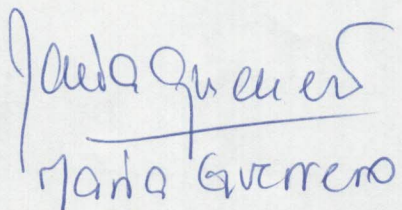 Maria Guerrero
Maria Guerrero